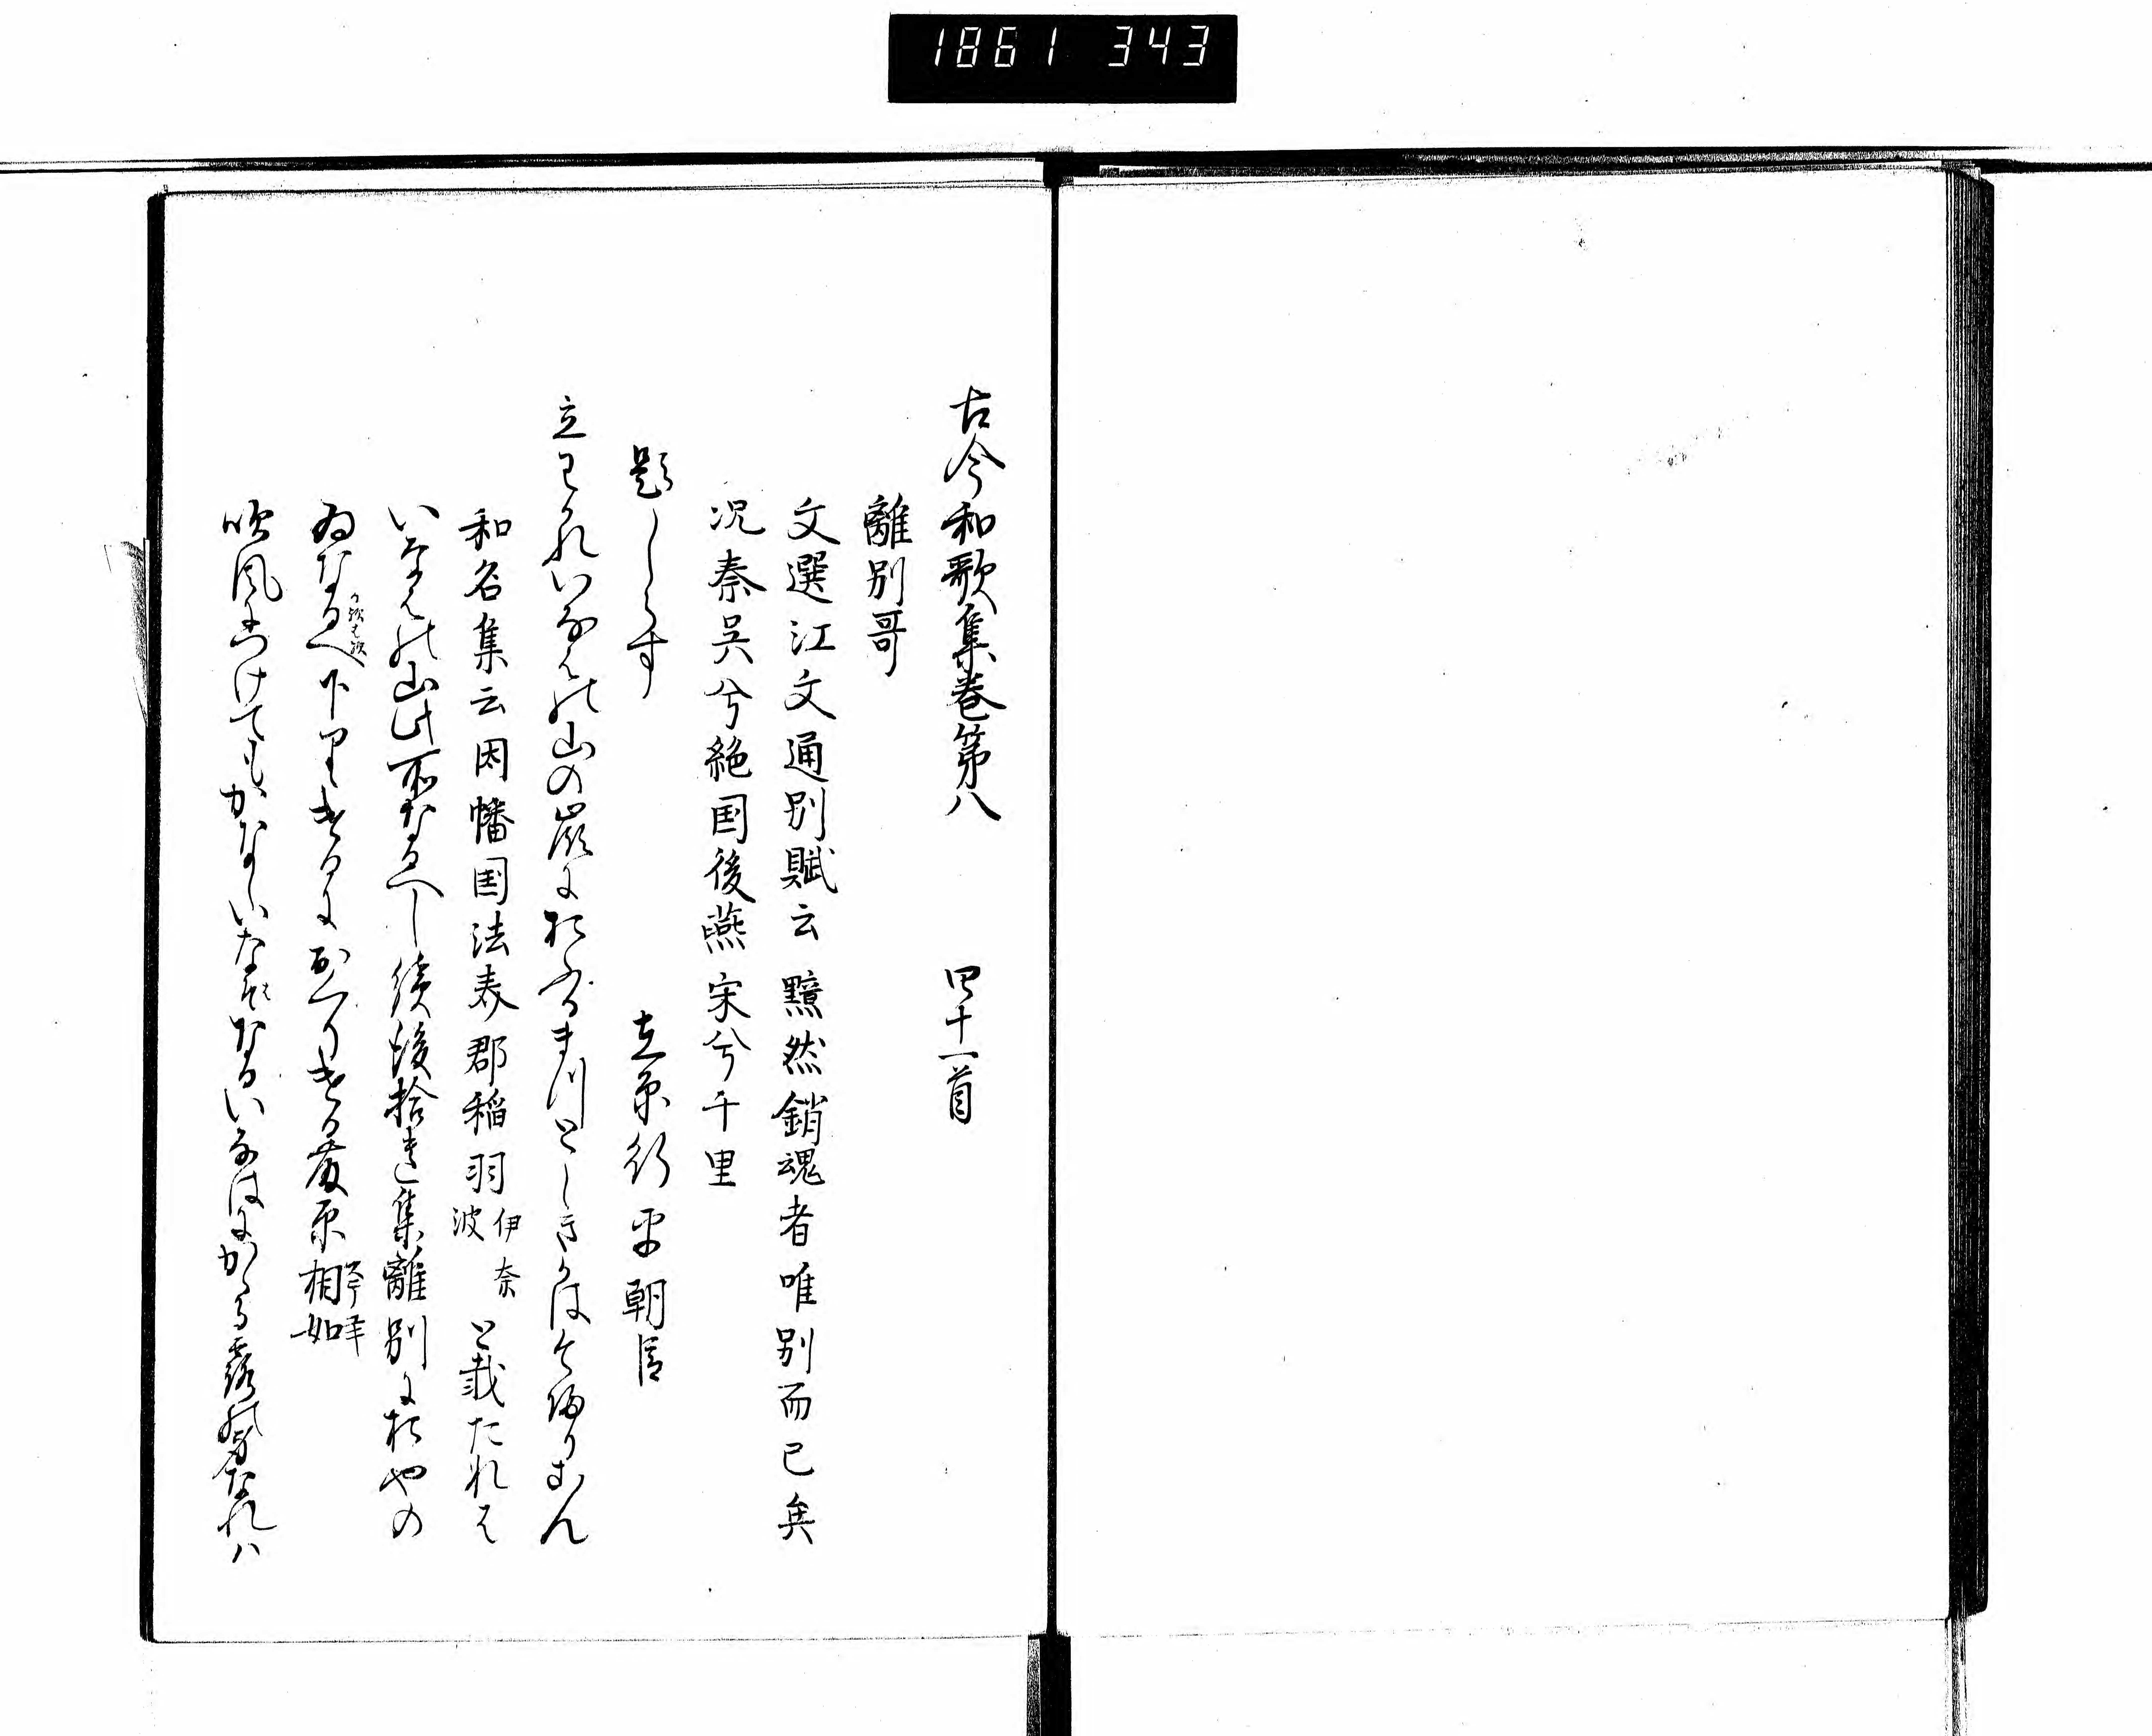 1861 343
古今和歌集巻第八 四十一首
離別哥
文選江文通別賦云黯然銷魂者唯別而已矣
况秦呉兮絶国後燕宋兮千里
題しらす 在原行平朝臣
立わかれいなはの山の嶺におふるまつとしきかは今帰りこん
和名集云因幡国法美郡稲羽伊奈波と載たれは
いなはの山此所なるへし続後拾遺集離別におやの
ゐなかへ下りけるにかへりける藤原相如
吹風につけてもかなしいなはなるいなはにかゝる露の身なれハ